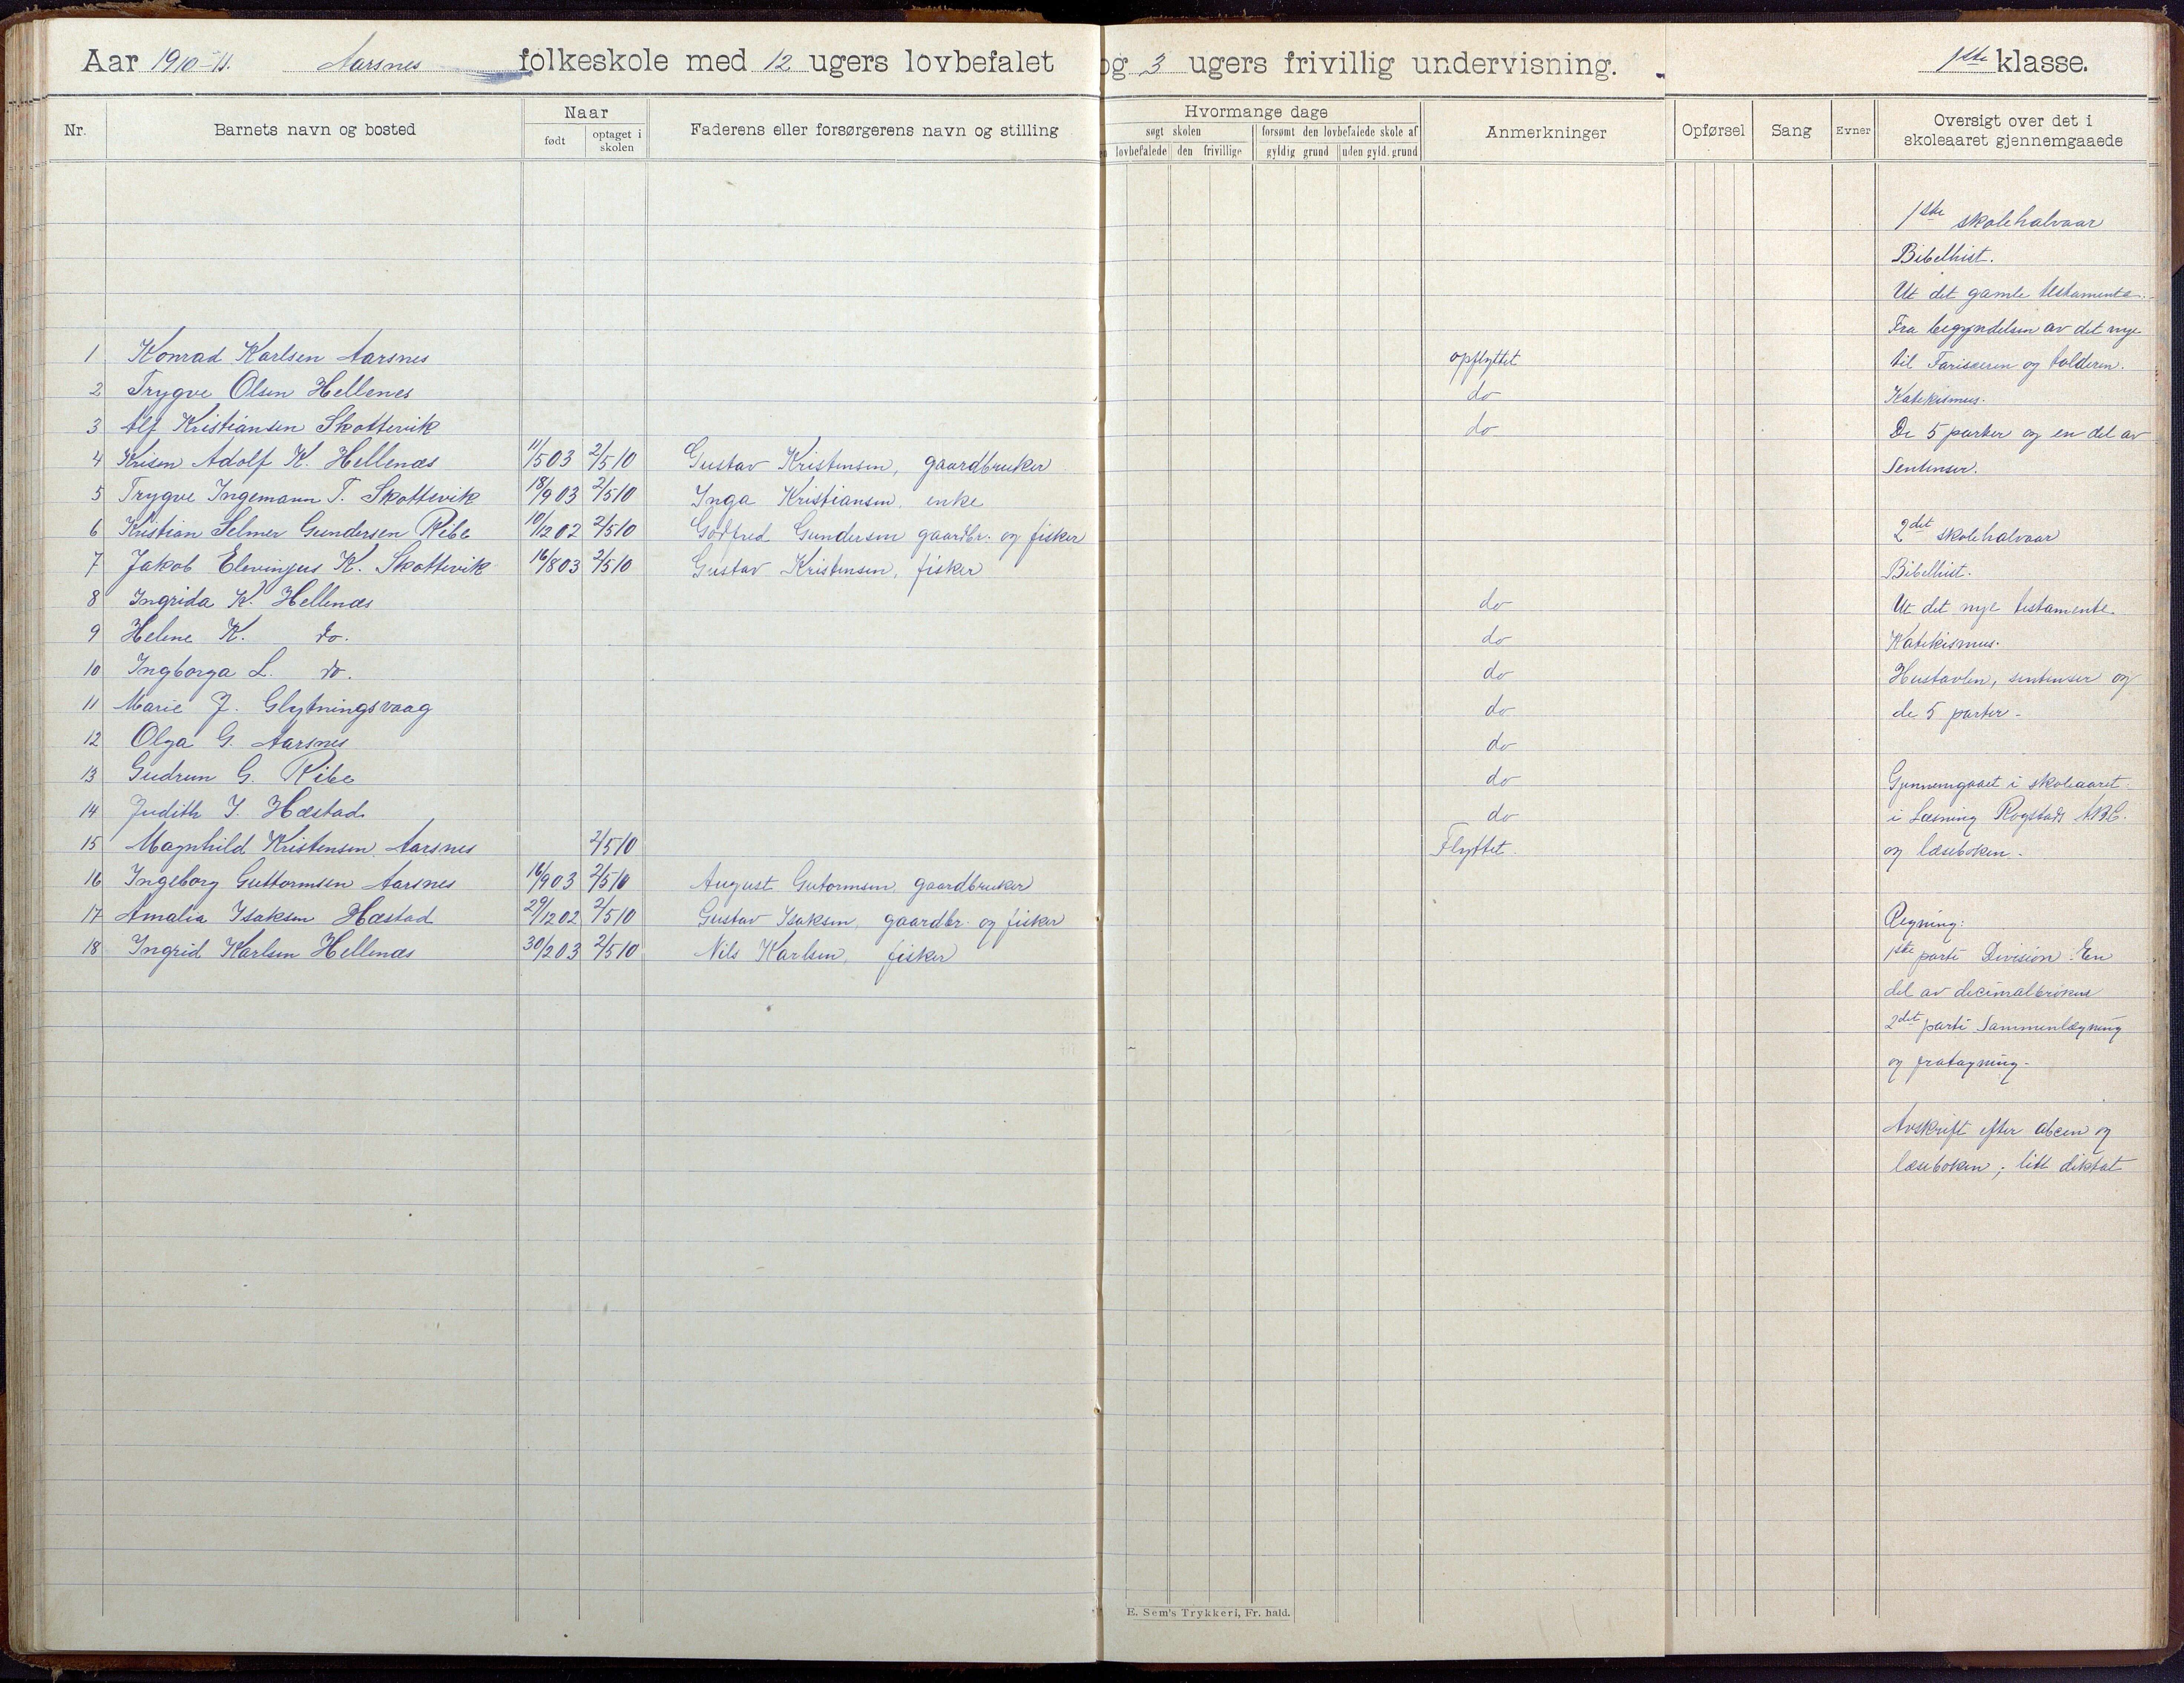 Aar 1910-11. Aarsnes folkeskole med 12 ugers lovbefalet og 3 ugers frivillig undervisning. 1ste klasse.
Nr. Barnets navn og bosted Naar født optaget i skolen Faderens eller forsørgerens navn og stilling
Hvormange dage
søgt skolen forsømt den lovbefalede skole af
lovbefalede den frivillige gyldig grund uden gyld. grund
Anmerkninger Opførsel Sang Evner Oversigt over det i skoleaaret gjennemgaaede
1 Konrad Karlsen Aarsnes opflyttet
2 Trygve Olsen Hellenes do
3 Alf Kristiansen Skottevik do
4 Krisen Adolf K. Hellenæs 11/5 03 2/5 10 Gustav Kristensen, gaardbruker
5 Trygve Ingemann T. Skottevik 18/9 03 2/5 10 Inga Kristiansen, enke
6 Kristian Selmer Gundersen Ribe 10/12 02 2/5 10 Godfred Gundersen gaardbr. og fisker
7 Jakob Elevinjus K. Skottevik 16/8 03 2/5 10 Gustav Kristensen, fisker
8 Ingrida K. Hellenæs do
9 Helene K. do. do
10 Ingborga L. do. do
11 Marie J. Glytningsvaag do
12 Olga G. Aarsnes do
13 Gudrun G. Ribe do
14 Judith I. Hæstad do
15 Magnhild Kristensen, Aarsnes 2/5 10 Flyttet
16 Ingeborg Guttormsen Aarsnes 16/9 03 2/5 10 August Gutormsen gaardbruker
17 Amalia Isaksen Hæstad 29/12 02 2/5 10 Gustav Isaksen, gaardbr. og fisker
18 Ingrid Karlsen Hellenæs 30/2 03 2/5 10 Nils Karlsen, fisker
1ste skolehalvaar
Bibelhist.
Ut det gamle testamente.
Fra begyndelsen av det nye
til Farisæeren og tolderen.
Katekismus.
De 5 parter og en del av
Sentenser.
2det skolehalvaar
Bibelhist.
Ut det nye testamente.
Katekismus.
Hustavlen, sentenser og
de 5 parter.
Gjennemgaaet i skoleaaret
i Læsning Rogstads ABC.
og læseboken.
Regning:
1ste parti Division. En
del av decimalbrøkene
2det parti Sammenlægning
og fratagning.
Avskrift efter abcen og
læseboken; litt diktat
E. Sem's Trykkeri, Fr. hald.